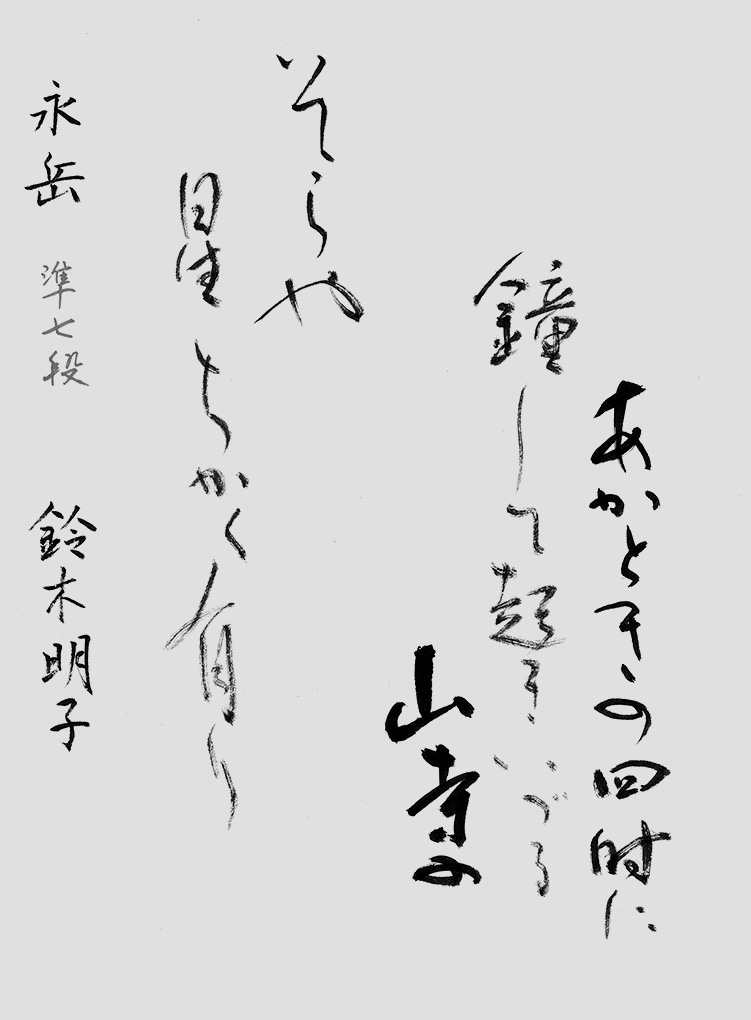 あかときの四時に
鐘して起きいづる
山寺の
そらや
星ちかく有り
永岳 準七段 鈴木明子